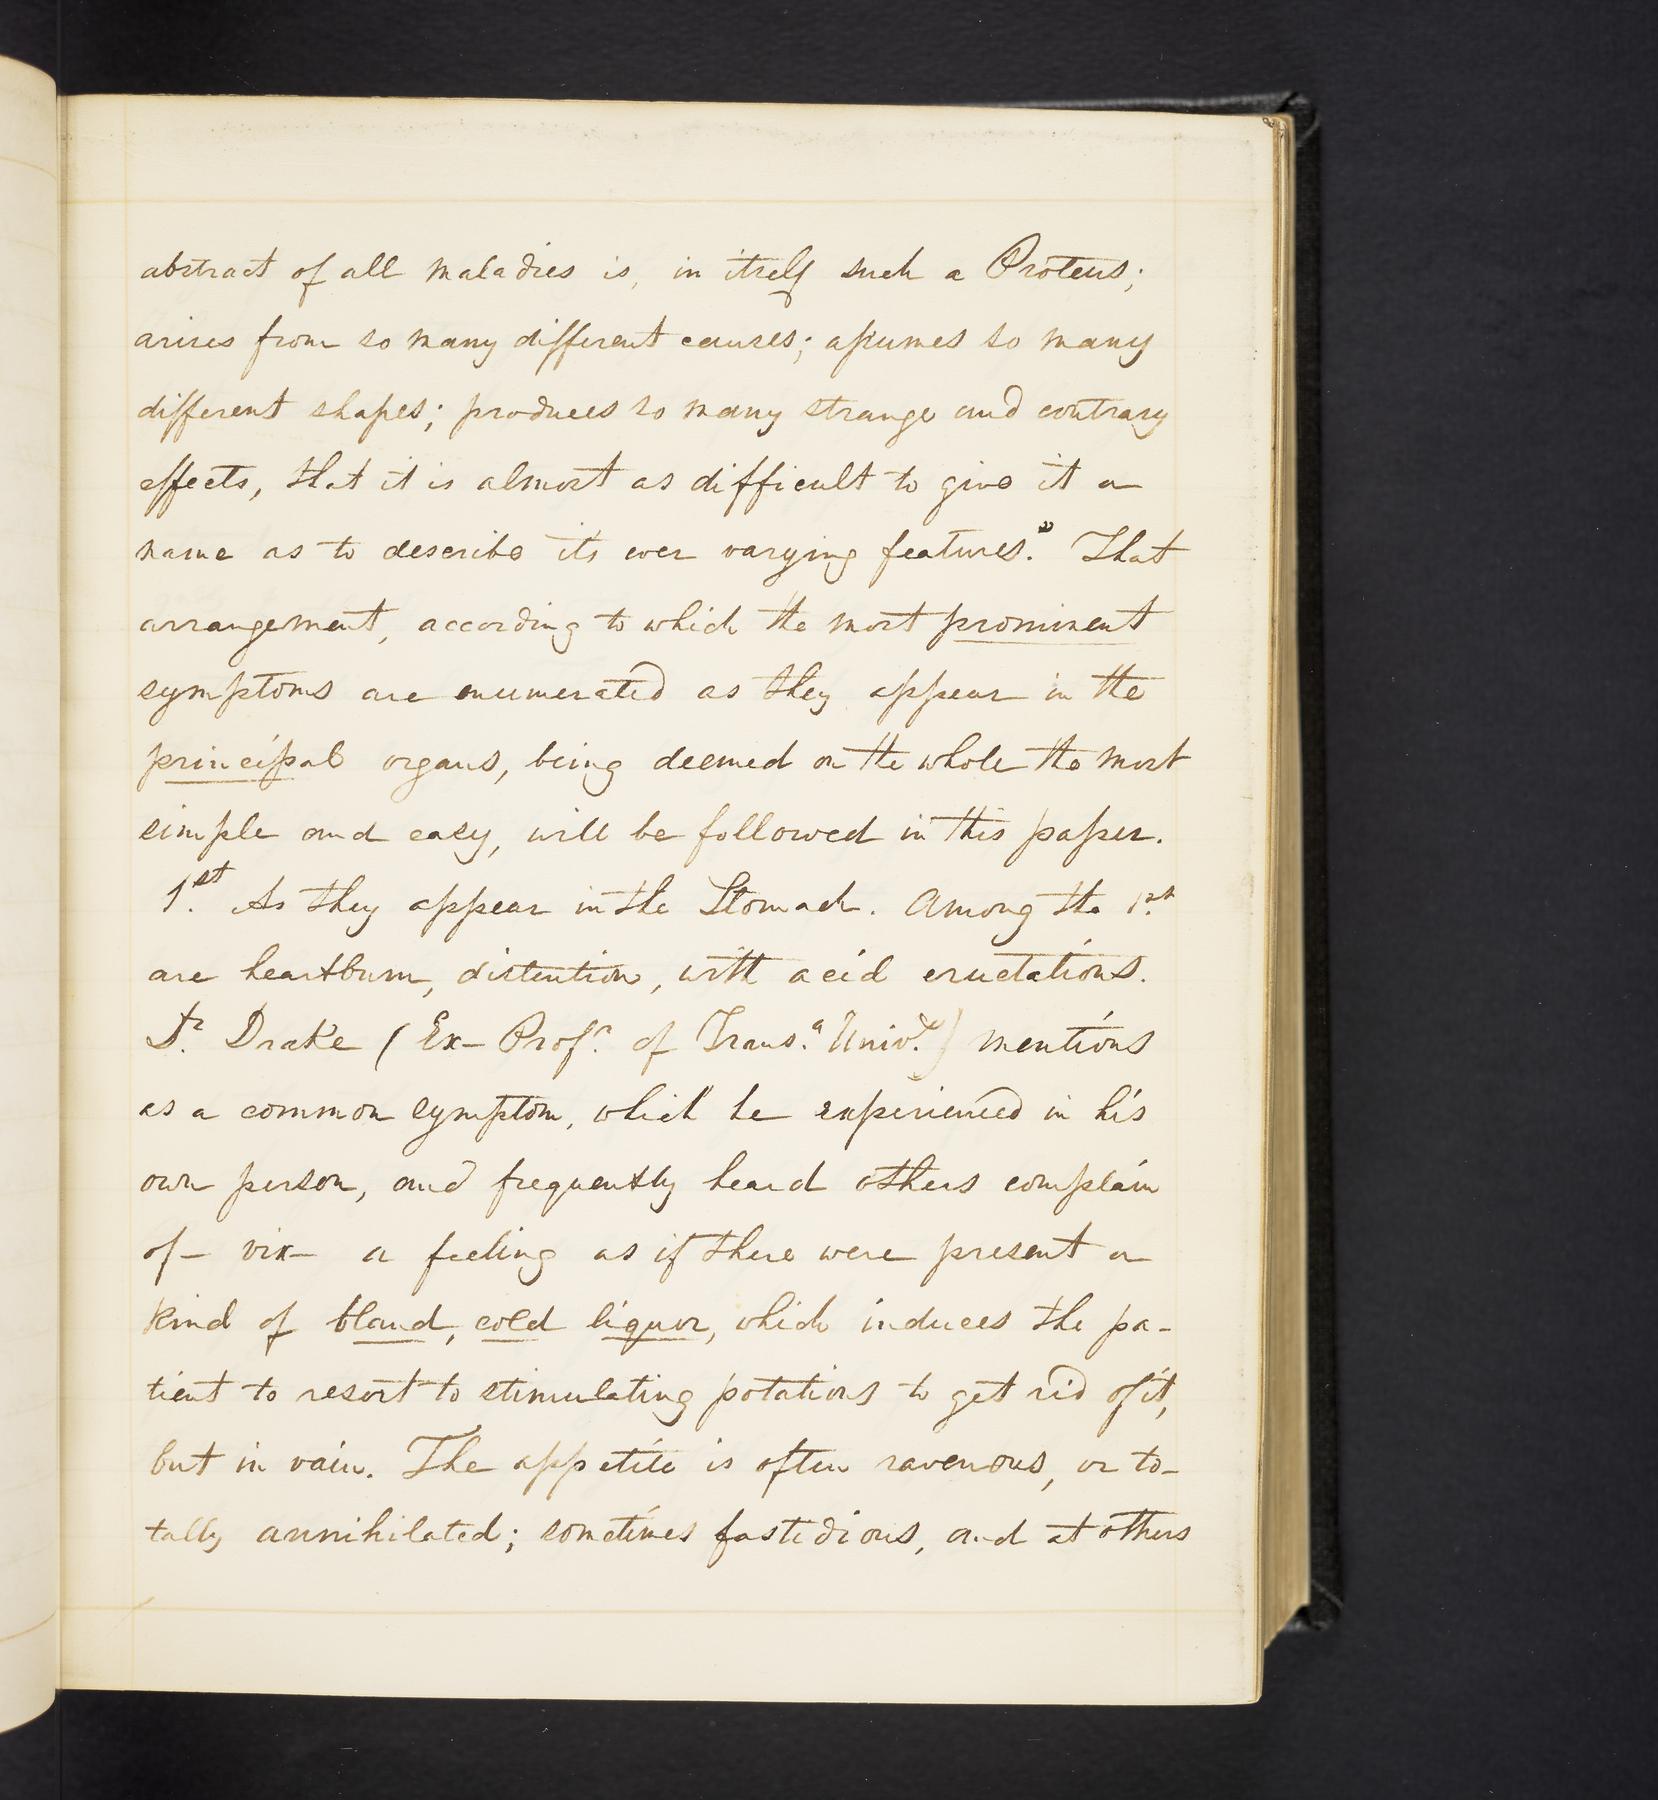 abstract of all maladies is, in itself such a Proteus;
arises from so many different causes; assumes so many
different shapes; produces so many strange and contrary
effects, that it is almost as difficult to give it a
name as to describe its ever varying features." That
arrangement, according to which the most prominent
symptoms are enumerated as they appear in the
principal organs, being deemed on the whole the most
simple and easy, will be followed in this paper.
1.st As they appear in the Stomach. Among the 1.st
are heartburn, distention, with acid eructations.
Dr. Drake (Ex-Profr. of Trans.a Univ.y) mentions
as a common symptom, which he experienced in his
own person, and frequently heard others complain
of- vix- a feeling as if there were present a
kind of bland, cold liquor, which induces the pa-
tient to resort to stimulating potations to get rid of it,
but in vain. The appetite is often ravenous, or to-
tally annihilated; sometimes fastidious, and at others